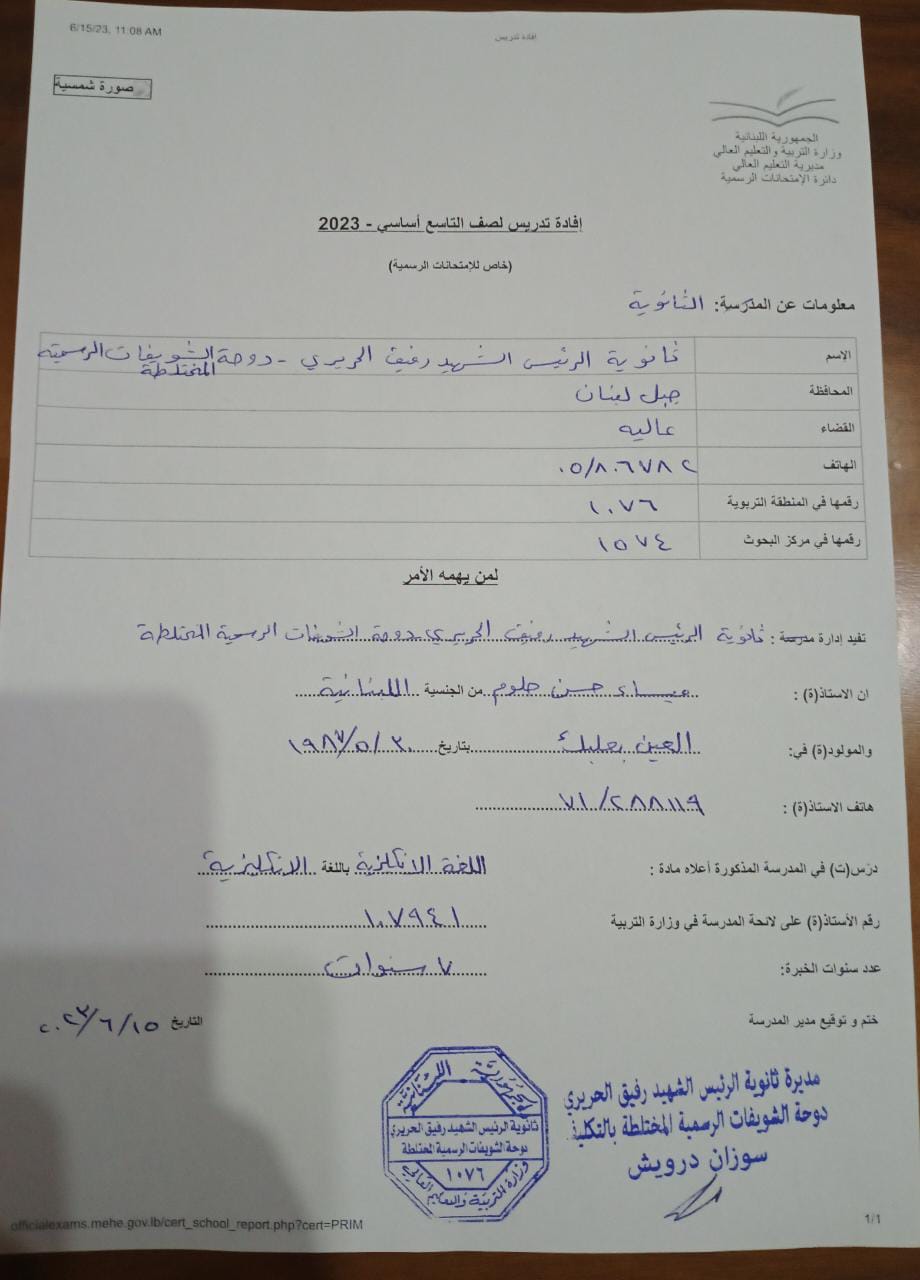 6/15/23, 11:08 AM
افادة تدريس
صورة شمسية
الجمهورية اللبنانية
وزارة التربية والتعليم العالي
مديرية التعليم العالي
دائرة الإمتحانات الرسمية
إفادة تدريس لصف التاسع أساسي - 2023
(خاص للإمتحانات الرسمية)
معلومات عن المدرسة: الثانوية
الاسم ثانوية الرئيس الشهيد رفيق الحريري - دوحة الشويفات الرسمية المختلطة
المحافظة جبل لبنان
القضاء عاليه
الهاتف ٠٥/٨٠٦٧٨٢
رقمها في المنطقة التربوية ١٠٧٦
رقمها في مركز البحوث ١٥٧٤
لمن يهمه الأمر
تفيد إدارة مدرسة : ثانوية الرئيس الشهيد رفيق الحريري دوحة الشويفات الرسمية المختلطة
ان الاستاذ(ة) : ميساء حسن حلوم من الجنسية اللبنانية
والمولود(ة) في: العين بعلبك بتاريخ ٣٠/٥/١٩٨٧
هاتف الاستاذ(ة) : ٧١/٢٨٨١١٩
درّس(ت) في المدرسة المذكورة أعلاه مادة : اللغة الانكلزية باللغة الانكليزية
رقم الأستاذ(ة) على لائحة المدرسة في وزارة التربية ١٠٧٩٤١
عدد سنوات الخبرة: ٧ سنوات
ختم و توقيع مدير المدرسة التاريخ ١٥/٦/٢٠٢٣
مديرة ثانوية الرئيس الشهيد رفيق الحريري
دوحة الشويفات الرسمية المختلطة بالتكليف
سوزان درويش
الجمهورية اللبنانية
ثانوية الرئيس الشهيد رفيق الحريري
دوحة الشويفات الرسمية المختلطة
١٠٧٦
وزارة التربية والتعليم العالي
officialexams.mehe.gov.lb/cert_school_report.php?cert=PRIM
1/1